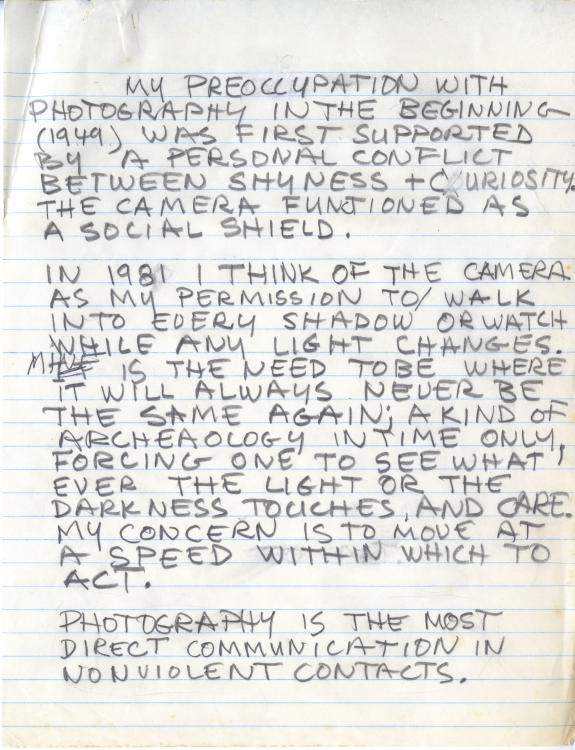 MY PREOCCUPATION WITH
PHOTOGRAPHY IN THE BEGINNING
(1949) WAS FIRST SUPPORTED
BY A PERSONAL CONFLICT
BETWEEN SHYNESS + CURIOSITY.
THE CAMERA FUNTIONED AS
A SOCIAL SHIELD.
IN 1981 I THINK OF THE CAMERA
AS MY PERMISSION TO/WALK
INTO EVERY SHADOW OR WATCH
WHILE ANY LIGHT CHANGES.
MINE IS THE NEED TO BE WHERE
IT WILL ALWAYS NEVER BE
THE SAME AGAIN; A KIND OF
ARCHEAOLOGY IN TIME ONLY,
FORCING ONE TO SEE WHAT,
EVER THE LIGHT OR THE
DARKNESS TOUCHES, AND CARE.
MY CONCERN IS TO MOVE AT
A SPEED WITHIN WHICH TO
ACT.
PHOTOGRAPHY IS THE MOST
DIRECT COMMUNICATION IN
NONVIOLENT CONTACTS.